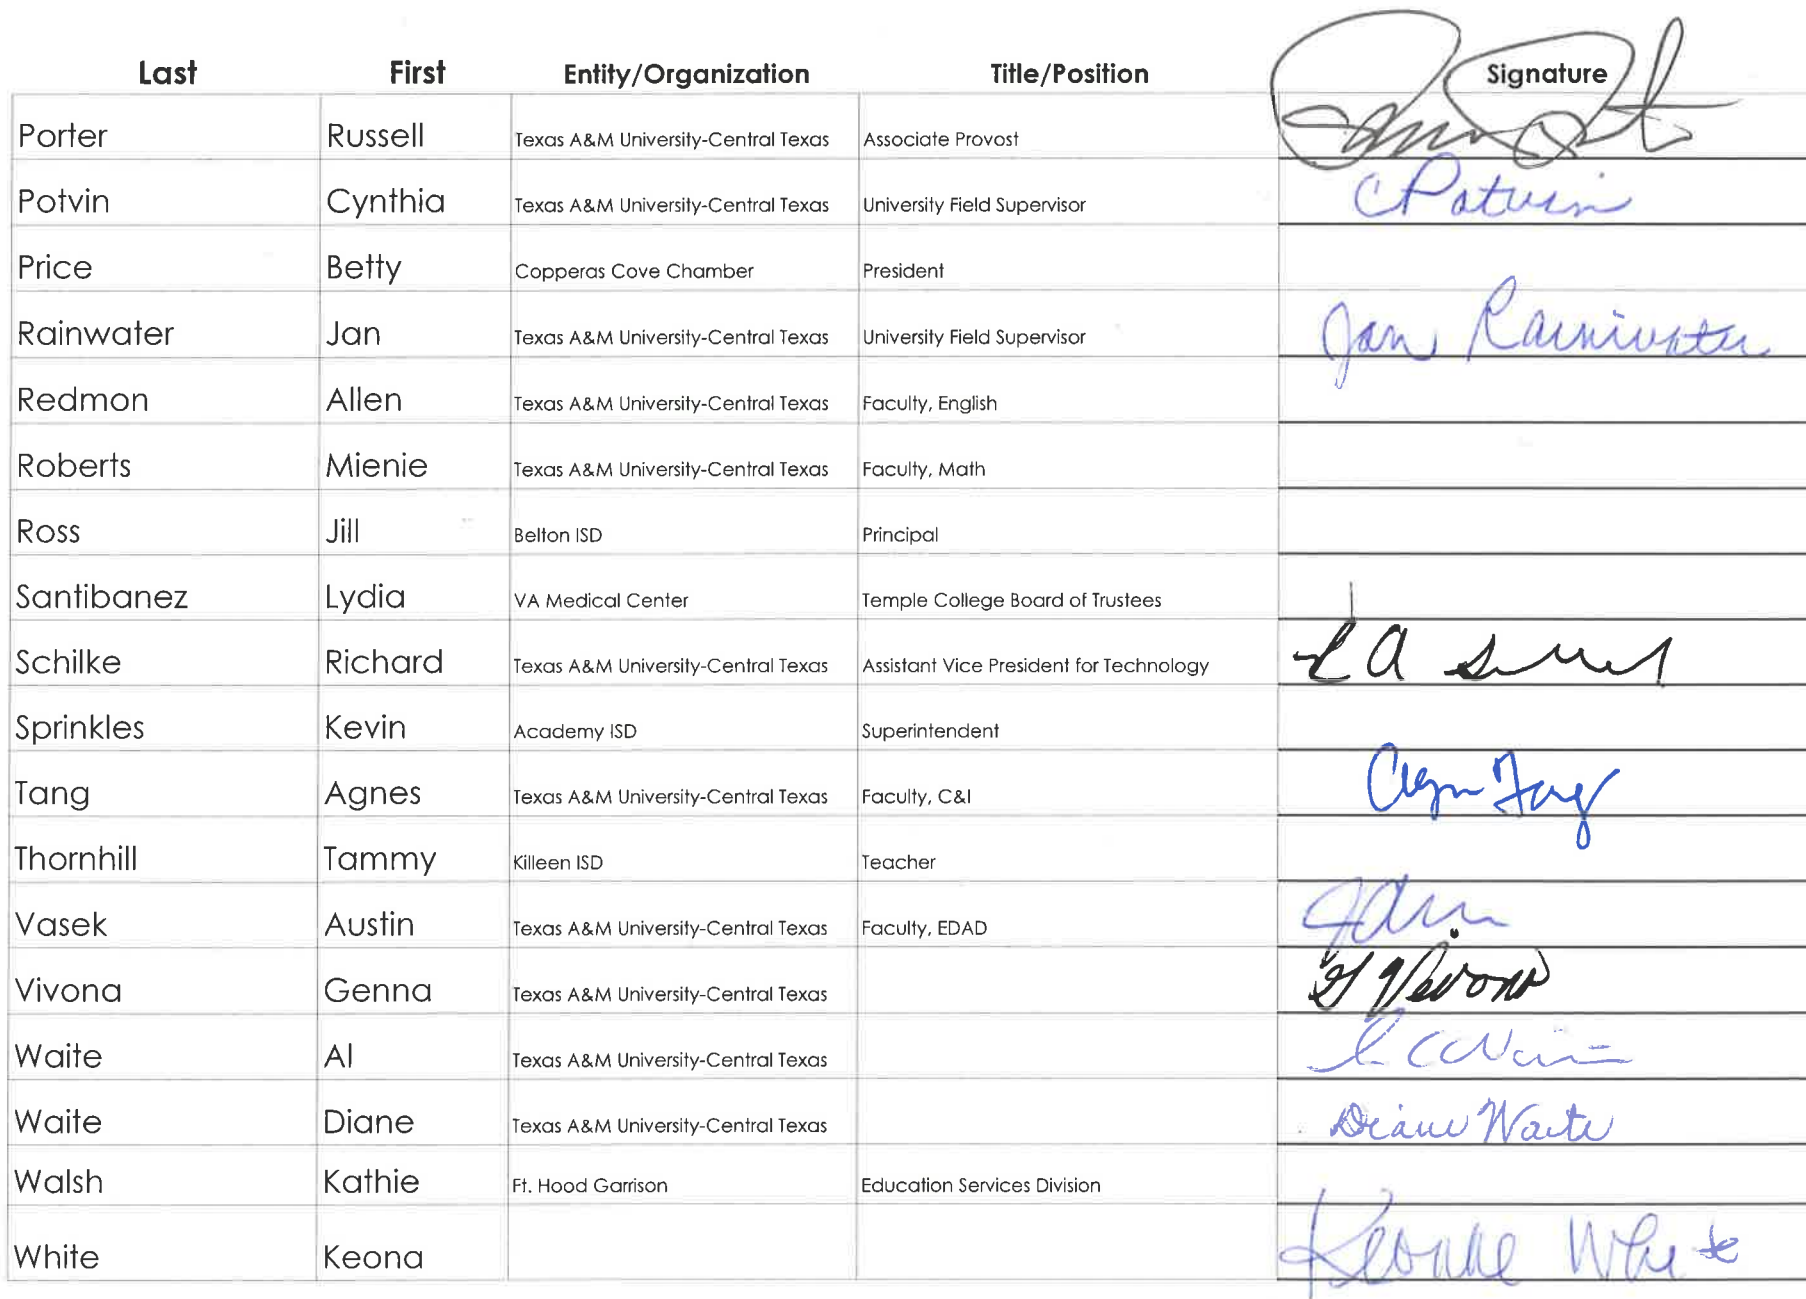 Last First Entity/Organization Title/Position Signature
Porter Russell Texas A&M University-Central Texas Associate Provost
Potvin Cynthia Texas A&M University-Central Texas University Field Supervisor CPotvin
Price Betty Copperas Cove Chamber President
Rainwater Jan Texas A&M University-Central Texas University Field Supervisor Jan Rainwater
Redmon Allen Texas A&M University-Central Texas Faculty, English
Roberts Mienie Texas A&M University-Central Texas Faculty, Math
Ross Jill Belton ISD Principal
Santibanez Lydia VA Medical Center Temple College Board of Trustees
Schilke Richard Texas A&M University-Central Texas Assistant Vice President for Technology
Sprinkles Kevin Academy ISD Superintendent
Tang Agnes Texas A&M University-Central Texas Faculty, C&I Agnes Tang
Thornhill Tammy Killeen ISD Teacher
Vasek Austin Texas A&M University-Central Texas Faculty, EDAD
Vivona Genna Texas A&M University-Central Texas G Vivona
Waite Al Texas A&M University-Central Texas
Waite Diane Texas A&M University-Central Texas Diane Waite
Walsh Kathie Ft. Hood Garrison Education Services Division
White Keona White